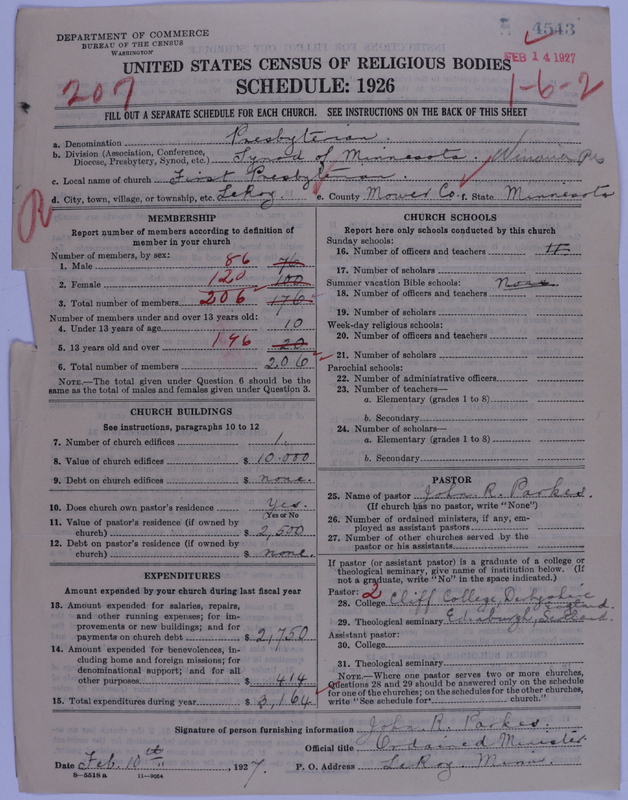 DEPARTMENT OF COMMERCE
BUREAU OF THE CENSUS
WASHINGTON
4543
FEB 14 1927
UNITED STATES CENSUS OF RELIGIOUS BODIES
SCHEDULE: 1926
207
1-6-2
FILL OUT A SEPARATE SCHEDULE FOR EACH CHURCH. SEE INSTRUCTIONS ON THE BACK OF THIS SHEET
a. Denomination Presbyterian.
b. Division (Association, Conference, Diocese, Presbytery, Synod, etc.) Synod of Minnesota. Winona Pres
c. Local name of church First Presbyterian.
d. City, town, village, or township, etc. LeRoy. e. County Mower Co. f. State Minnesota
R
MEMBERSHIP
Report number of members according to definition of
member in your church
Number of members, by sex:
1. Male 86 76
2. Female 120 100
3. Total number of members 206 176
Number of members under and over 13 years old:
4. Under 13 years of age 10
5. 13 years old and over 196 20
6. Total number of members 206
NOTE.—The total given under Question 6 should be
same as the total of males and females given under Question 3.
CHURCH BUILDINGS
See instructions, paragraphs 10 to 12
7. Number of church edifices 1.
8. Value of church edifices $ 10.000
9. Debt on church edifices $ none.
10. Does church own pastor's residence Yes.
(Yes or No)
11. Value of pastor's residence (if owned by
church) $ 2,500
12. Debt on pastor's residence (if owned by
church) $ none.
EXPENDITURES
Amount expended by your church during last fiscal year
13. Amount expended for salaries, repairs,
and other running expenses; for im-
provements or new buildings; and for
payments on church debt $ 2,750
14. Amount expended for benevolences, in-
cluding home and foreign missions; for
denominational support; and for all
other purposes $ 414
15. Total expenditures during year $ 3,164
CHURCH SCHOOLS
Report here only schools conducted by this church
Sunday schools:
16. Number of officers and teachers 11.
17. Number of scholars
Summer vacation Bible schools: None
18. Number of officers and teachers
19. Number of scholars
Week-day religious schools:
20. Number of officers and teachers
21. Number of scholars
Parochial schools:
22. Number of administrative officers
23. Number of teachers—
a. Elementary (grades 1 to 8)
b. Secondary
24. Number of scholars—
a. Elementary (grades 1 to 8)
b. Secondary
PASTOR
25. Name of pastor John R. Parkes.
(If church has no pastor, write "None")
26. Number of ordained ministers, if any, em-
ployed as assistant pastors
27. Number of other churches served by the
pastor or his assistants
If pastor (or assistant pastor) is a graduate of a college or
theological seminary, give name of institution below. (If
not a graduate, write "No" in the space indicated.)
Pastor: 2
28. College Cliff College, Derbyshire England.
29. Theological seminary Edinburgh, Scotland.
Assistant pastor:
30. College
31. Theological seminary
NOTE.—Where one pastor serves two or more churches,
Questions 28 and 29 should be answered only on the schedule
for one of the churches; on the schedules for the other churches,
write "See schedule for church."
Signature of person furnishing information John R. Parkes.
Official title Ordained Minister
Date Feb. 10th, 1927. P. O. Address LeRoy. Minn.
8—5518 a 11—9054